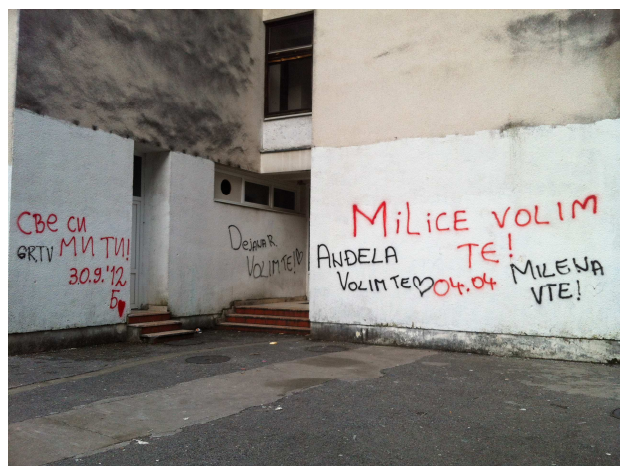 СВЕ СИ
МИ ТИ!
GRTV
30.9.'12
Б
Dejana R.
VOLIM TE!
MiLiCE VOLIM
TE!
ANĐELA
VOLIM TE
04.04
MILENA
VTE!